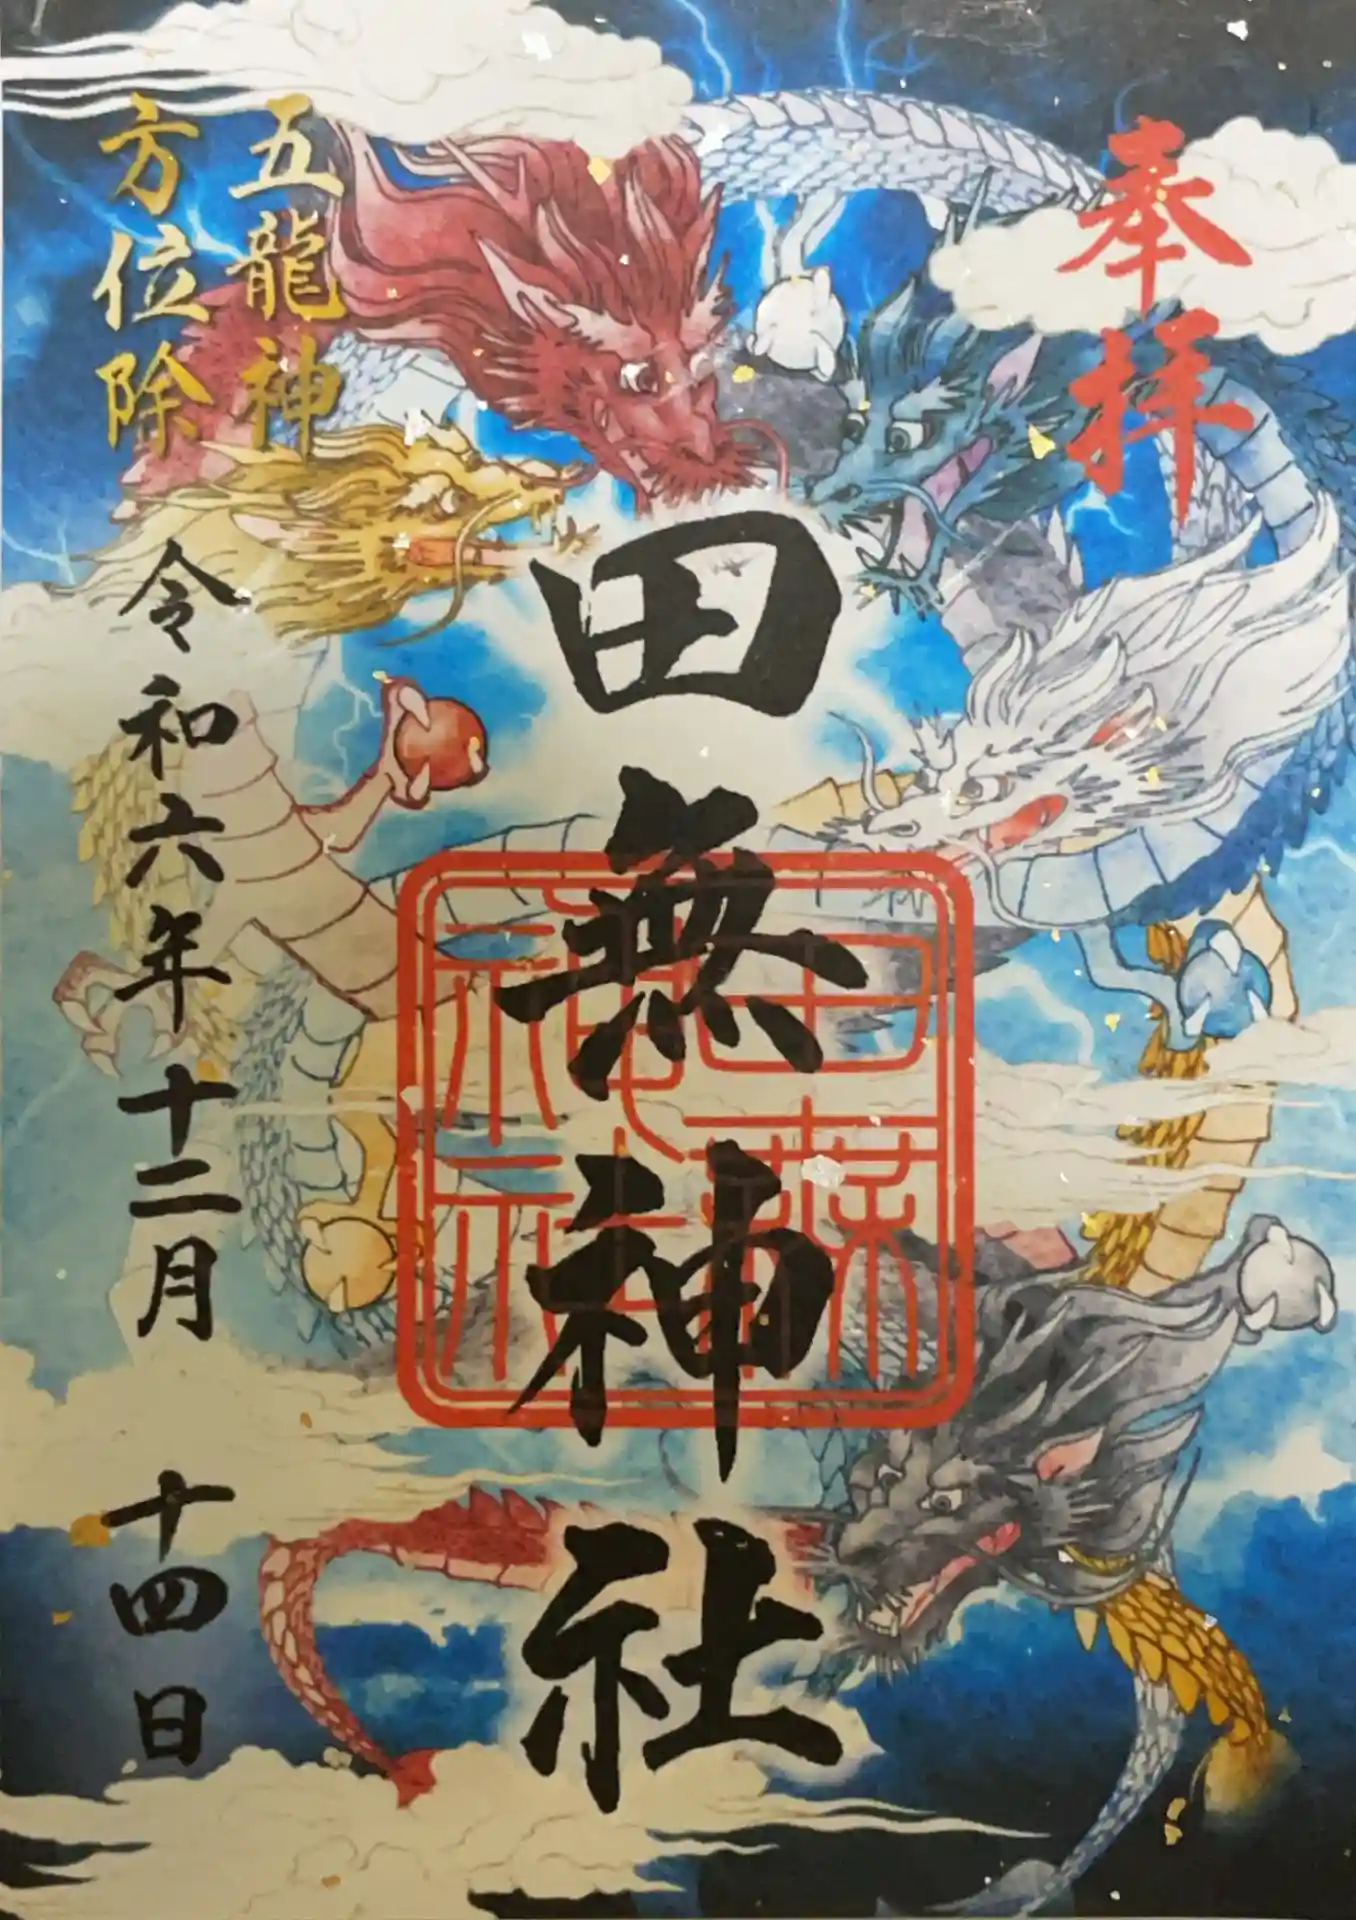 奉拝
田無神社
五龍神
方位除
令和六年十二月十四日
田無
神社